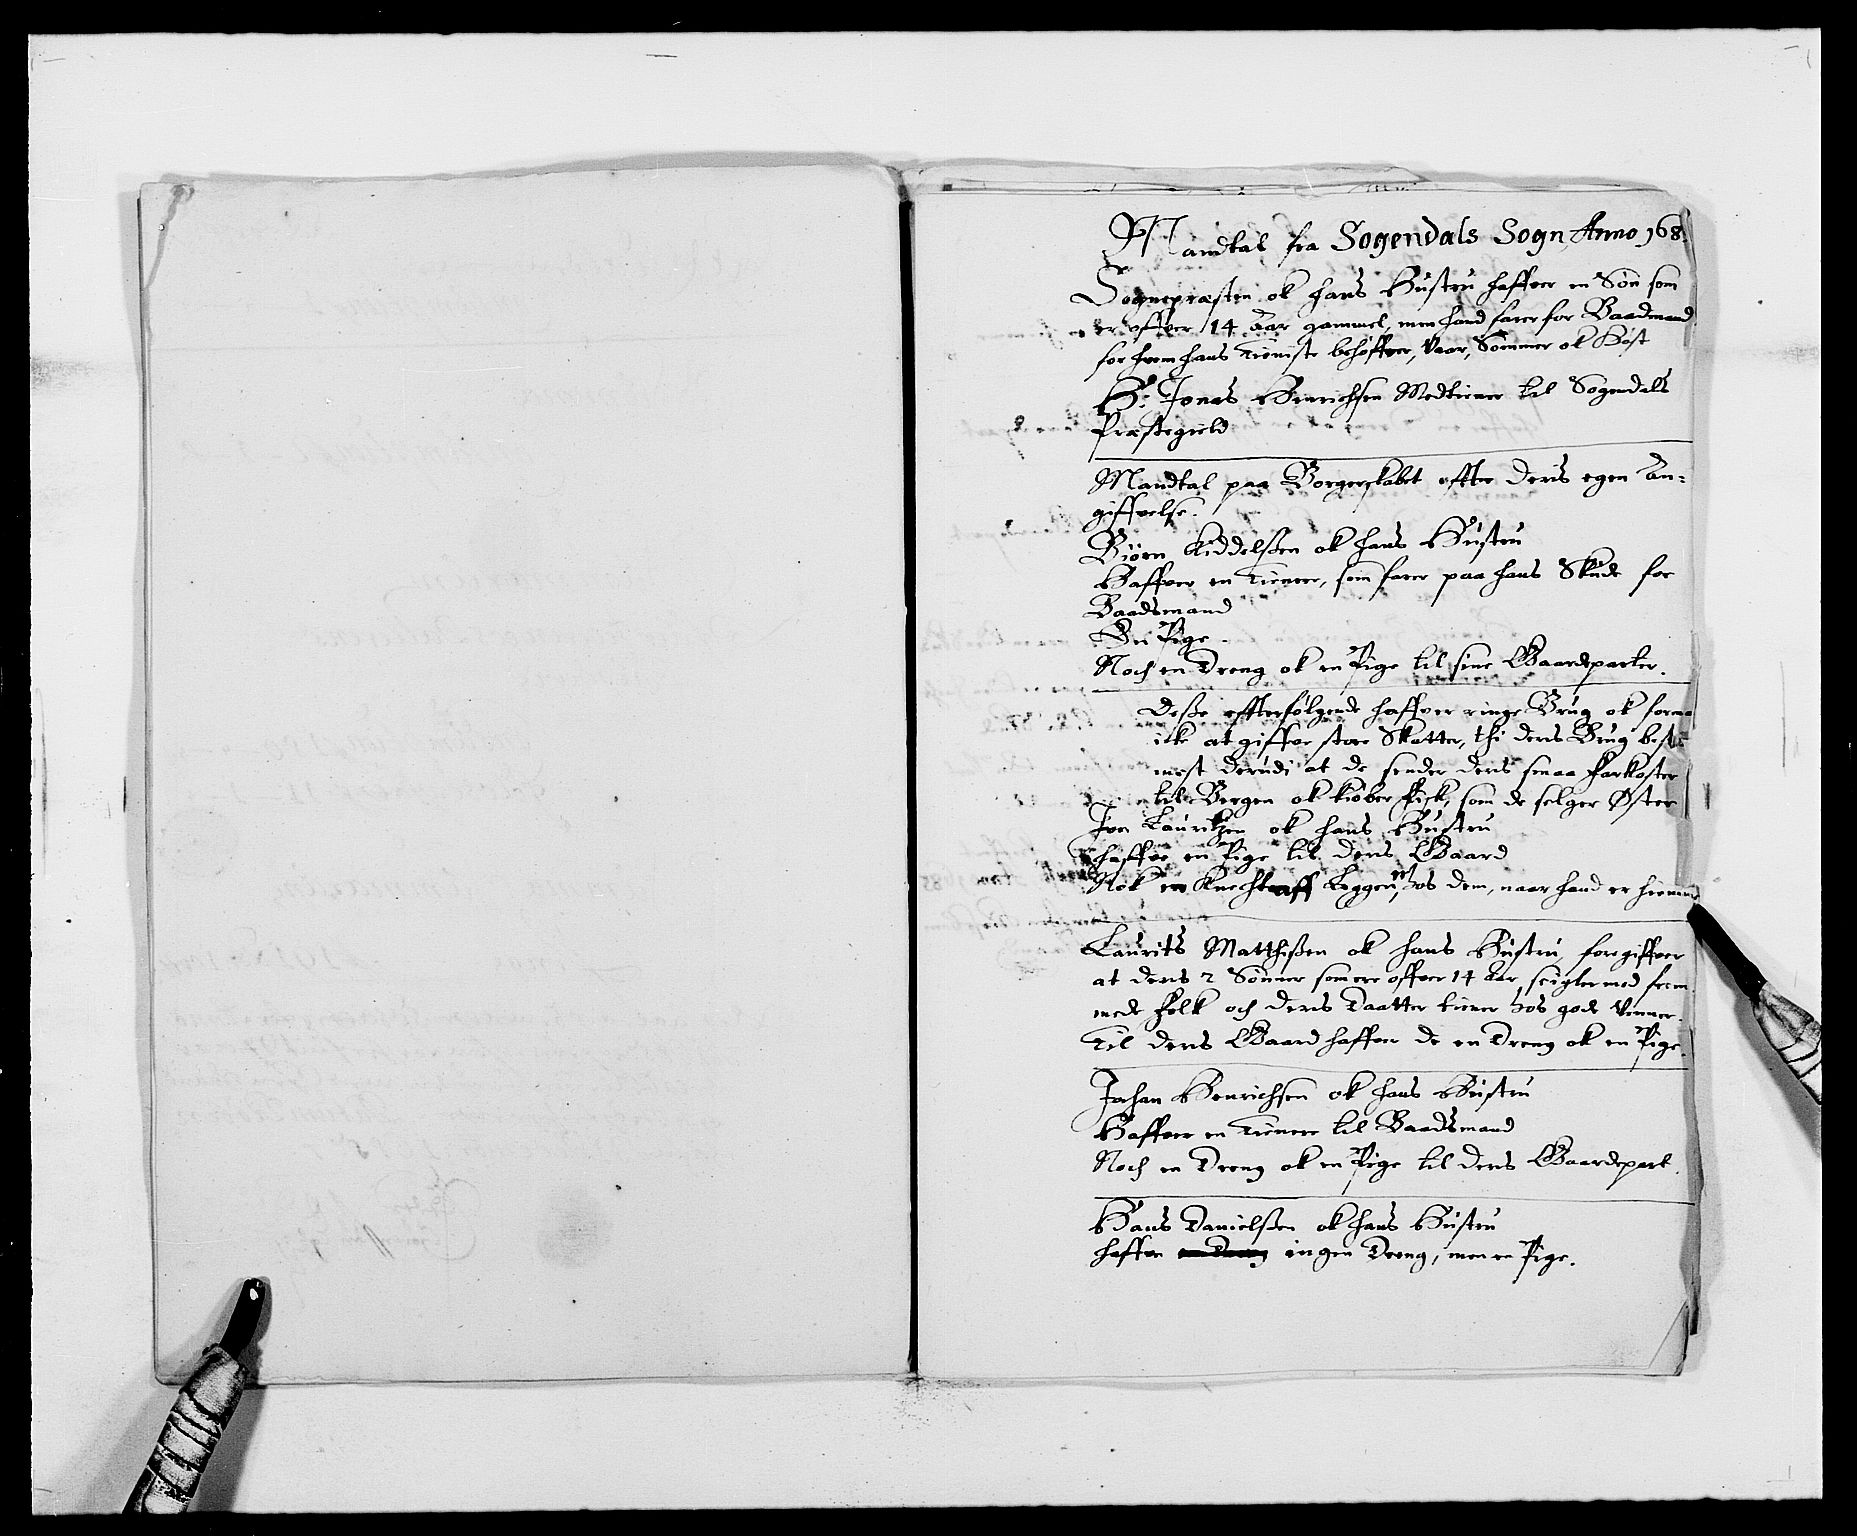 Mandtal fra Sogendals Sogn Anno 168
Sognepræsten ok hans Hustru haffver en Søn som
er offver 14 Aar gammel, men hand farer for Baadmand
for hvem hans tieniste behøffver, Vaar, Sommer ok Høst
Hr: Jonas Henrichsen Medtiener til Sogendals
Præstegield
Mandtal paa Borgerskabet effter deris egen An-
giffvelse.
Biørn Kiddelßen ok hans Hustru
Haffver en tienere, som farer paa hans Skude for
Baadsmand
En Pige
Noch en Dreng ok en Pige til sine Gaardeparter.
Deße effterfølgende haffver ringe Brug ok forma
ick at giffve store Skatter, thi deris Brug best
mest derudi at de sender deris smaa farkoster
til Bergen ok kiøber fisk, som de selger Øster
Iver Lauritzen ok hans Hustru
haffver en Pige til deris Gaard
Nok en Knecht aff Leggen, hos dem, naar hand er hiemme
Laurits Matthißen ok hans Hustru foregiffver
at deris 2 Sønner som ere offver 14 Aar, seigler med frem
mede folk och deris Daatter tiener hos gode Venner.
Til deris Gaard haffver de en Dreng ok en Pige.
Johan Henrichsen ok hans Hustru
Haffver en tienere til Baadsmand
Noch en Dreng ok en Pige til deris Gaardepart.
Hans Danielßen ok hans Hustru
haffver en Dreng ingen Dreng, men en Pige.